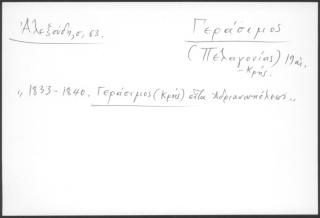 Ἀλεξούδη, σ, 63.
Γεράσιμος
(Πελαγονίας) 19 αἰ.
-Κρής.
„ 1833 - 1840. Γεράσιμος (Κρὴς) εἶτα Ἀδριανουπόλεως „